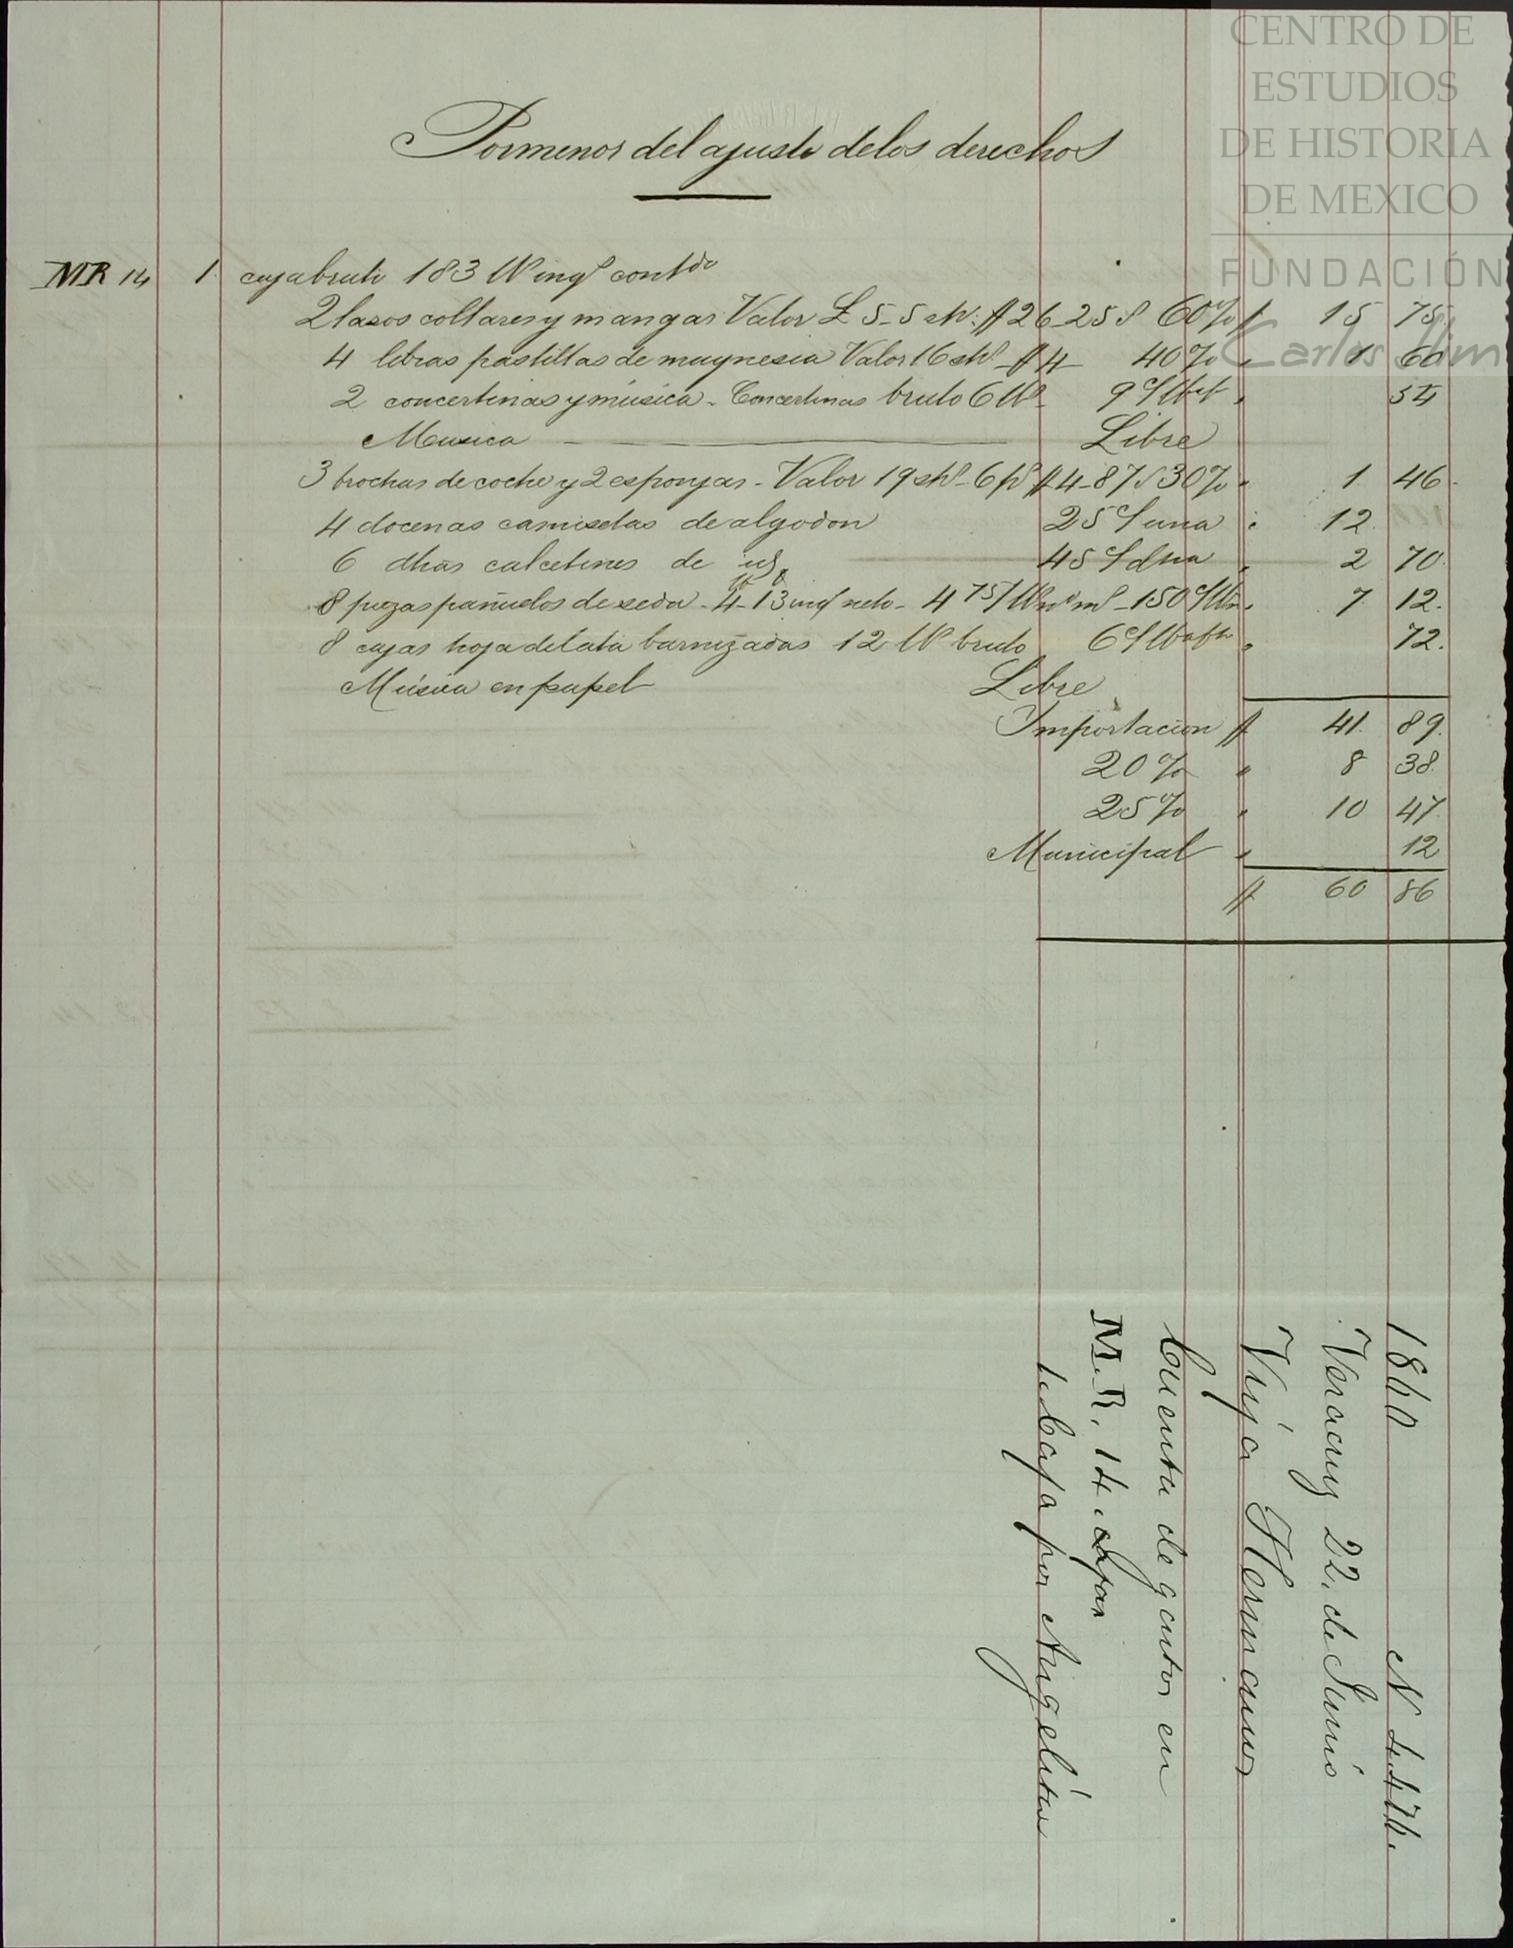 CENTRO DE
ESTUDIOS
DE HISTORIA
DE MEXICO
FUNDACIÓN
Carlos Slim
Pormenor del ajuste de los derechos
MR 14 1 caja bruto 183 lb ings contdo
2 lazos collares y mangas Valor £ 5-5 sh: $26-25 60% $ 15 75
4 libras pastillas de magnesia Valor 16 shs - $4- 40% " 1 60
2 concertinas y música - Concertinas bruto 6 lbs - 9 " 54
Musica Libre
3 brochas de coche y 2 esponjas - Valor 19 shs - 6 ps $4-87 30% " 1 46
4 docenas camisetas de algodon 25 una " 12
6 dhas calcetines de id. 45 dna " 2 70
8 piezas pañuelos de seda - 4-13 ings neto - 4 75 - 150 " 7 12
8 cajas hoja de lata barnizadas 12 lbs bruto 6 " 72
Música en papel Libre
Importacion $ 41 89
20% " 8 38
25% " 10 47
Municipal " 12
$ 60 86
N
Veracruz 22. de Junio
Hermanos
Cuenta de gastos en
M.R. 14.
1. Caja por